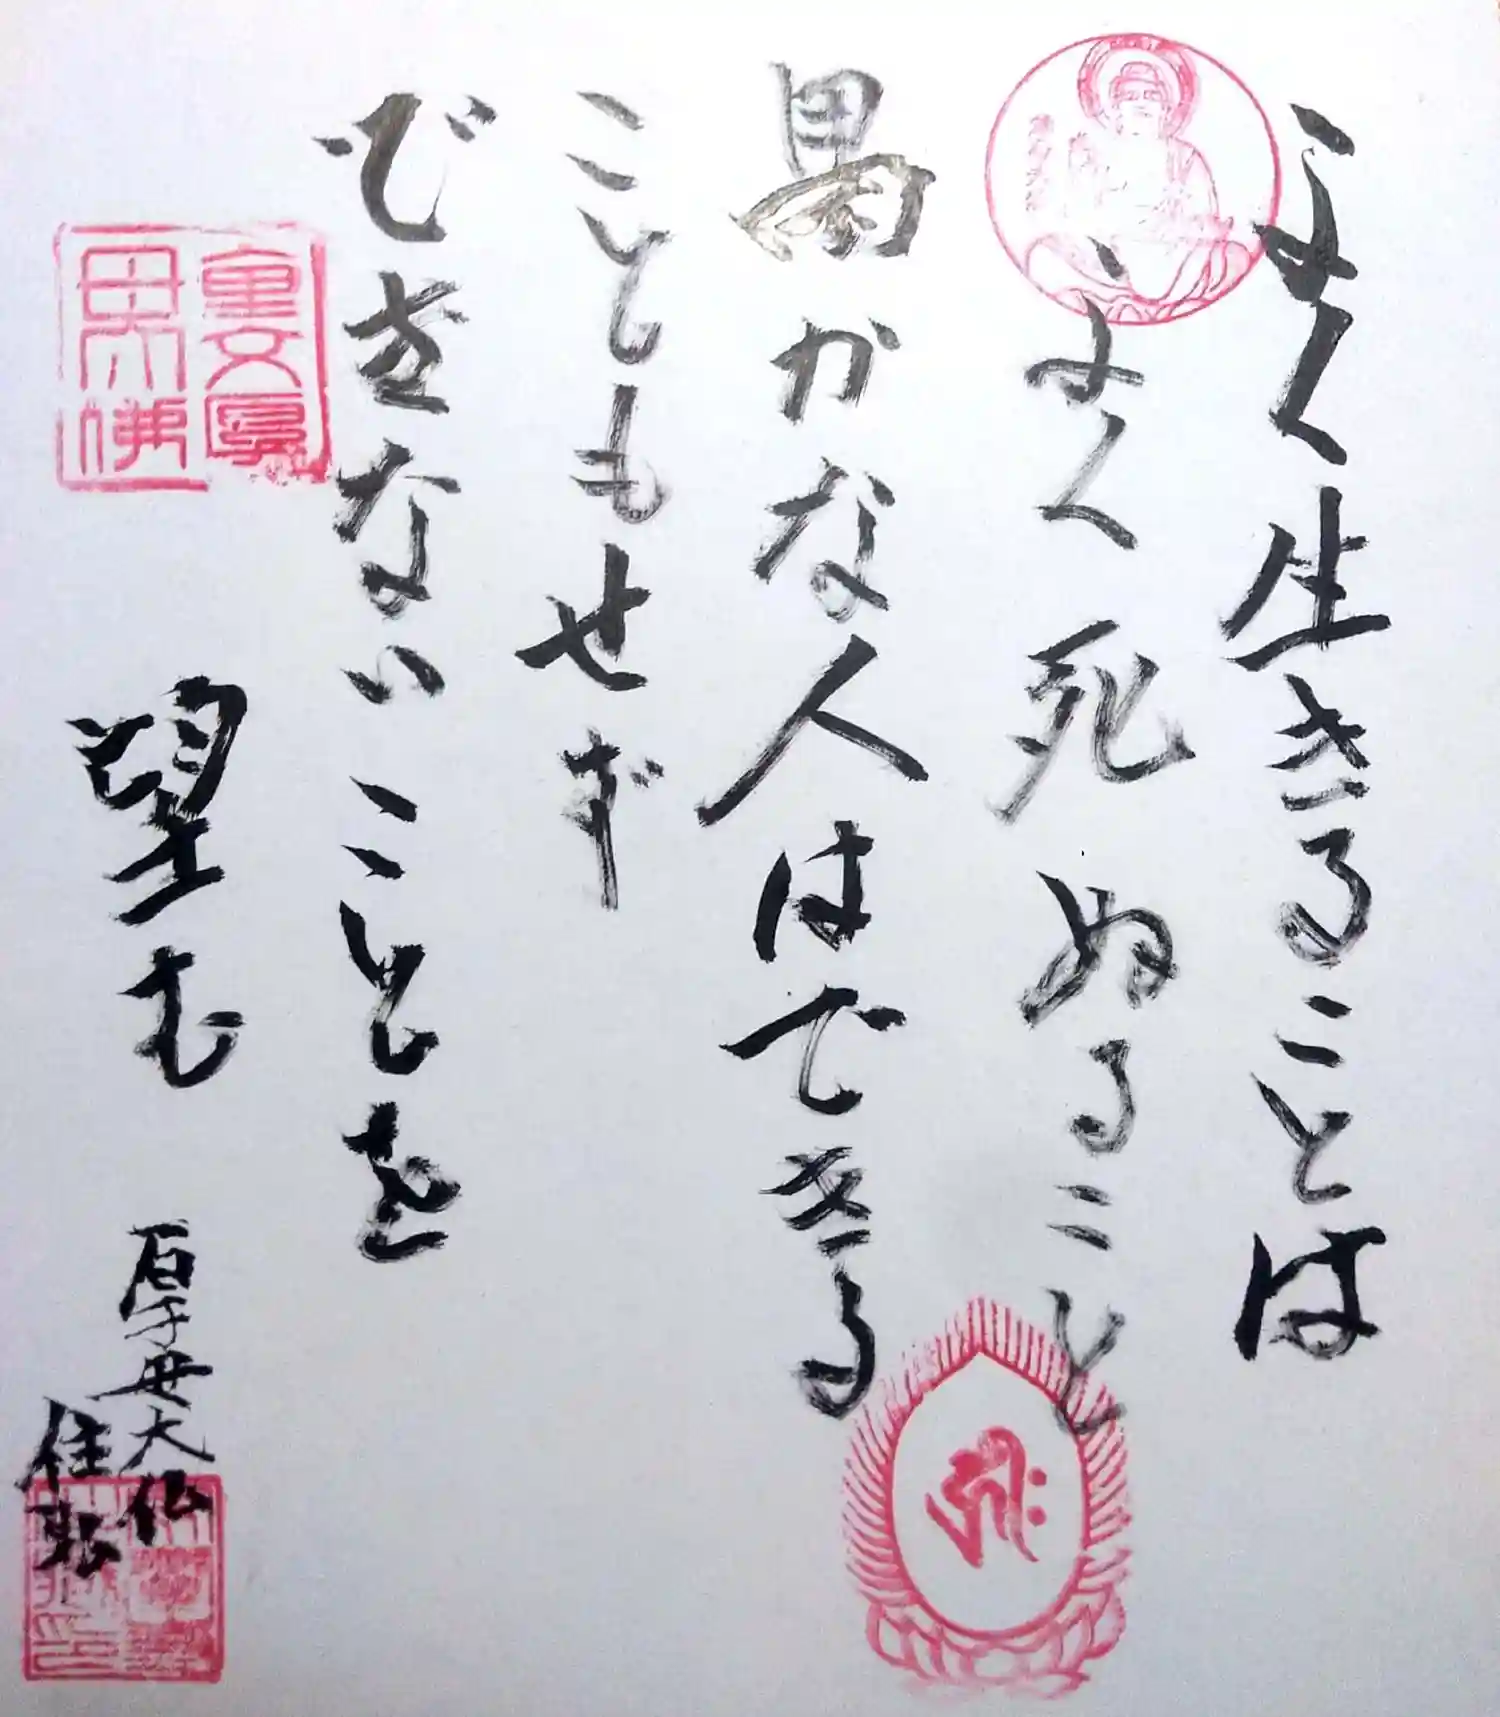 よく生きることは
、よく死ぬること
愚かな人はできる
こともせず
できないことを
望む
厚母大仏
住職